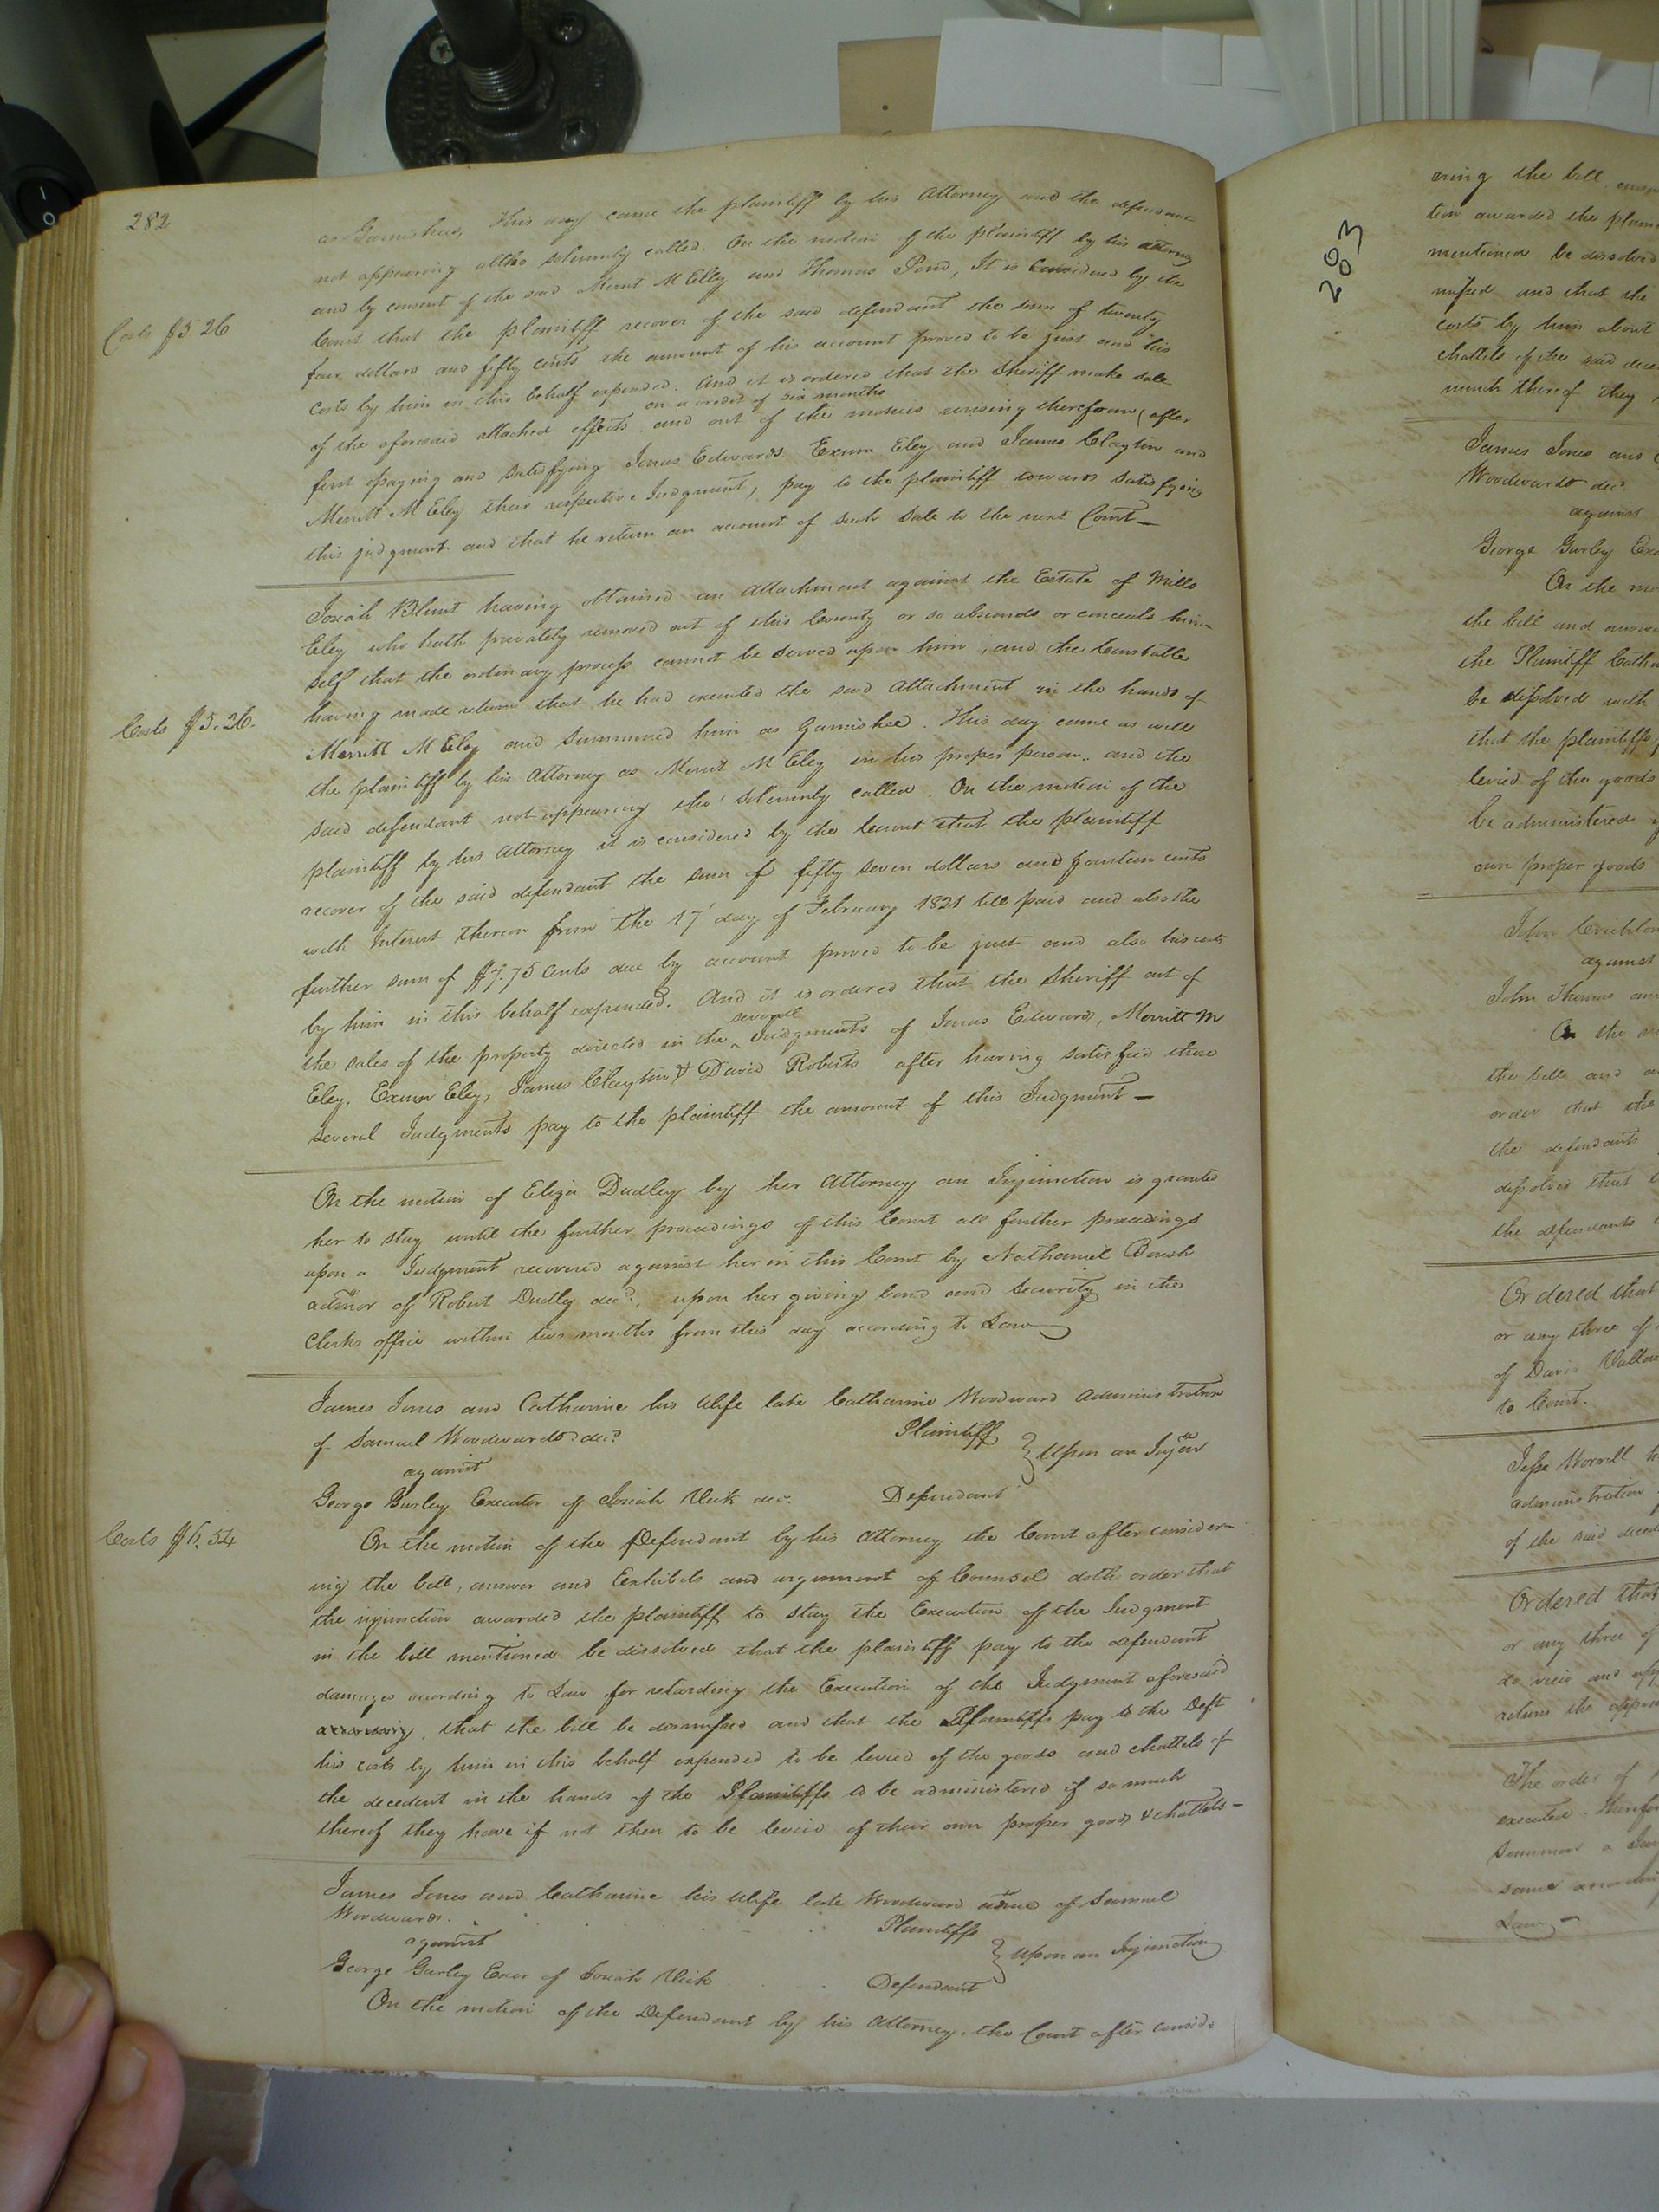 282
as Garnishees, This day came the plaintiff by his Attorney and the defendant
not appearing altho solemnly called. On the motion of the plaintiff by his attorney
and by consent of the said Merrit M Eley and Thomas Pond, It is Considered by the
Court that the plaintiff recover of the said defendant the sum of twenty
Costs $5 26
four dollars and fifty cents the amount of his account proved to be just and his
costs by him in this behalf expended. And it is ordered that the Sheriff make sale
on a credit of six months
of the aforesaid attached effects and out of the monies arising therefrom (after
first paying and satisfying Jonas Edwards. Exum Eley and James Clayton and
Merritt M Eley their respective Judgment, pay to the plaintiff towards satisfying
this judgment and that he return an account of such sale to the next Court —
Josiah Blunt having obtained an attachment against the Estate of Mills
Eley who hath privately removed out of this County or so absconds or conceals him-
self that the ordinary process cannot be served upon him, and the Constable
having made return that he had executed the said attachment in the hands of
Costs $5.26.
Merritt M Eley and summoned him as Garnishee. This day came as well
the plaintiff by his attorney as Merrit M Eley in his proper person. and the
said defendant not appearing tho' solemnly called. On the motion of the
plaintiff by his attorney it is considered by the Court that the plaintiff
recover of the said defendant the sum of fifty seven dollars and fourteen cents
with Interest thereon from the 17' day of February 1821 till paid and also the
further sum of $7.75 cents due by account proved to be just and also his costs
by him in this behalf expended. And it is ordered that the Sheriff out of
several
the sales of the property directed in the ^ Judgments of Jonas Edwards, Merritt M
Eley, Exum Eley, James Clayton & David Roberts after having satisfied these
several Judgments pay to the plaintiff the amount of this Judgment —
On the motion of Eliza Dudley by her Attorney an Injunction is granted
her to stay until the further proceedings of this Court all further proceedings
upon a Judgment recovered against her in this Court by Nathaniel
admor of Robert Dudley decd., upon her giving bond and security in the
Clerks office within two months from this day according to Law
James Jones and Catharine his Wife late Catharine Woodward Administratrix
of Samuel Woodward decd
Plaintiff
against
} Upon an Injon
George Gurley Executor of Josiah Vick dec.
Defendant
Costs $6.54
On the motion of the Defendant by his Attorney the Court after consider-
ing the bill, answer and Exhibits and argument of Counsel doth order that
the injunction awarded the plaintiff to stay the Execution of the Judgment
in the bill mentioned be dissolved that the plaintiff pay to the defendant
damages according to Law for retarding the Execution of the Judgment aforesaid
that the bill be dismissed and that the Plaintiffs pay to the Deft
his costs by him in this behalf expended to be levied of the goods and chattels of
the decedent in the hands of the Plaintiffs to be administered if so much
thereof they have if not then to be levied of their own proper goods & chattels —
James Jones and Catharine his Wife late Woodward admx of Samuel
Woodward.
Plaintiffs
against
} upon an Injunction
George Gurley Exor of Josiah Vick
Defendant
On the motion of the Defendant by his Attorney, the Court after consid-
203
ering the bill
tion awarded the plain
mentioned be dissolved
missed and that the
costs by him about
chattels of the said dece
much thereof they
James Jones and
Woodward dec.
against
George Gurley Exo
On the mo
the bill and answ
the Plaintiff Catha
be dissolved with
that the plaintiffs
levied of the goods
be administered
own proper goods
John Crichlow
against
John Thomas an
On the m
the bill and a
order that the
the defendants
dissolved that
the defendants
Ordered that
or any three of
of Davis
to Court.
Jesse Worrell
administration
of the said deced
Ordered that
or any three of
to view and app
return the apprai
The order of
executed. Therefor
summon a
same according
Law —